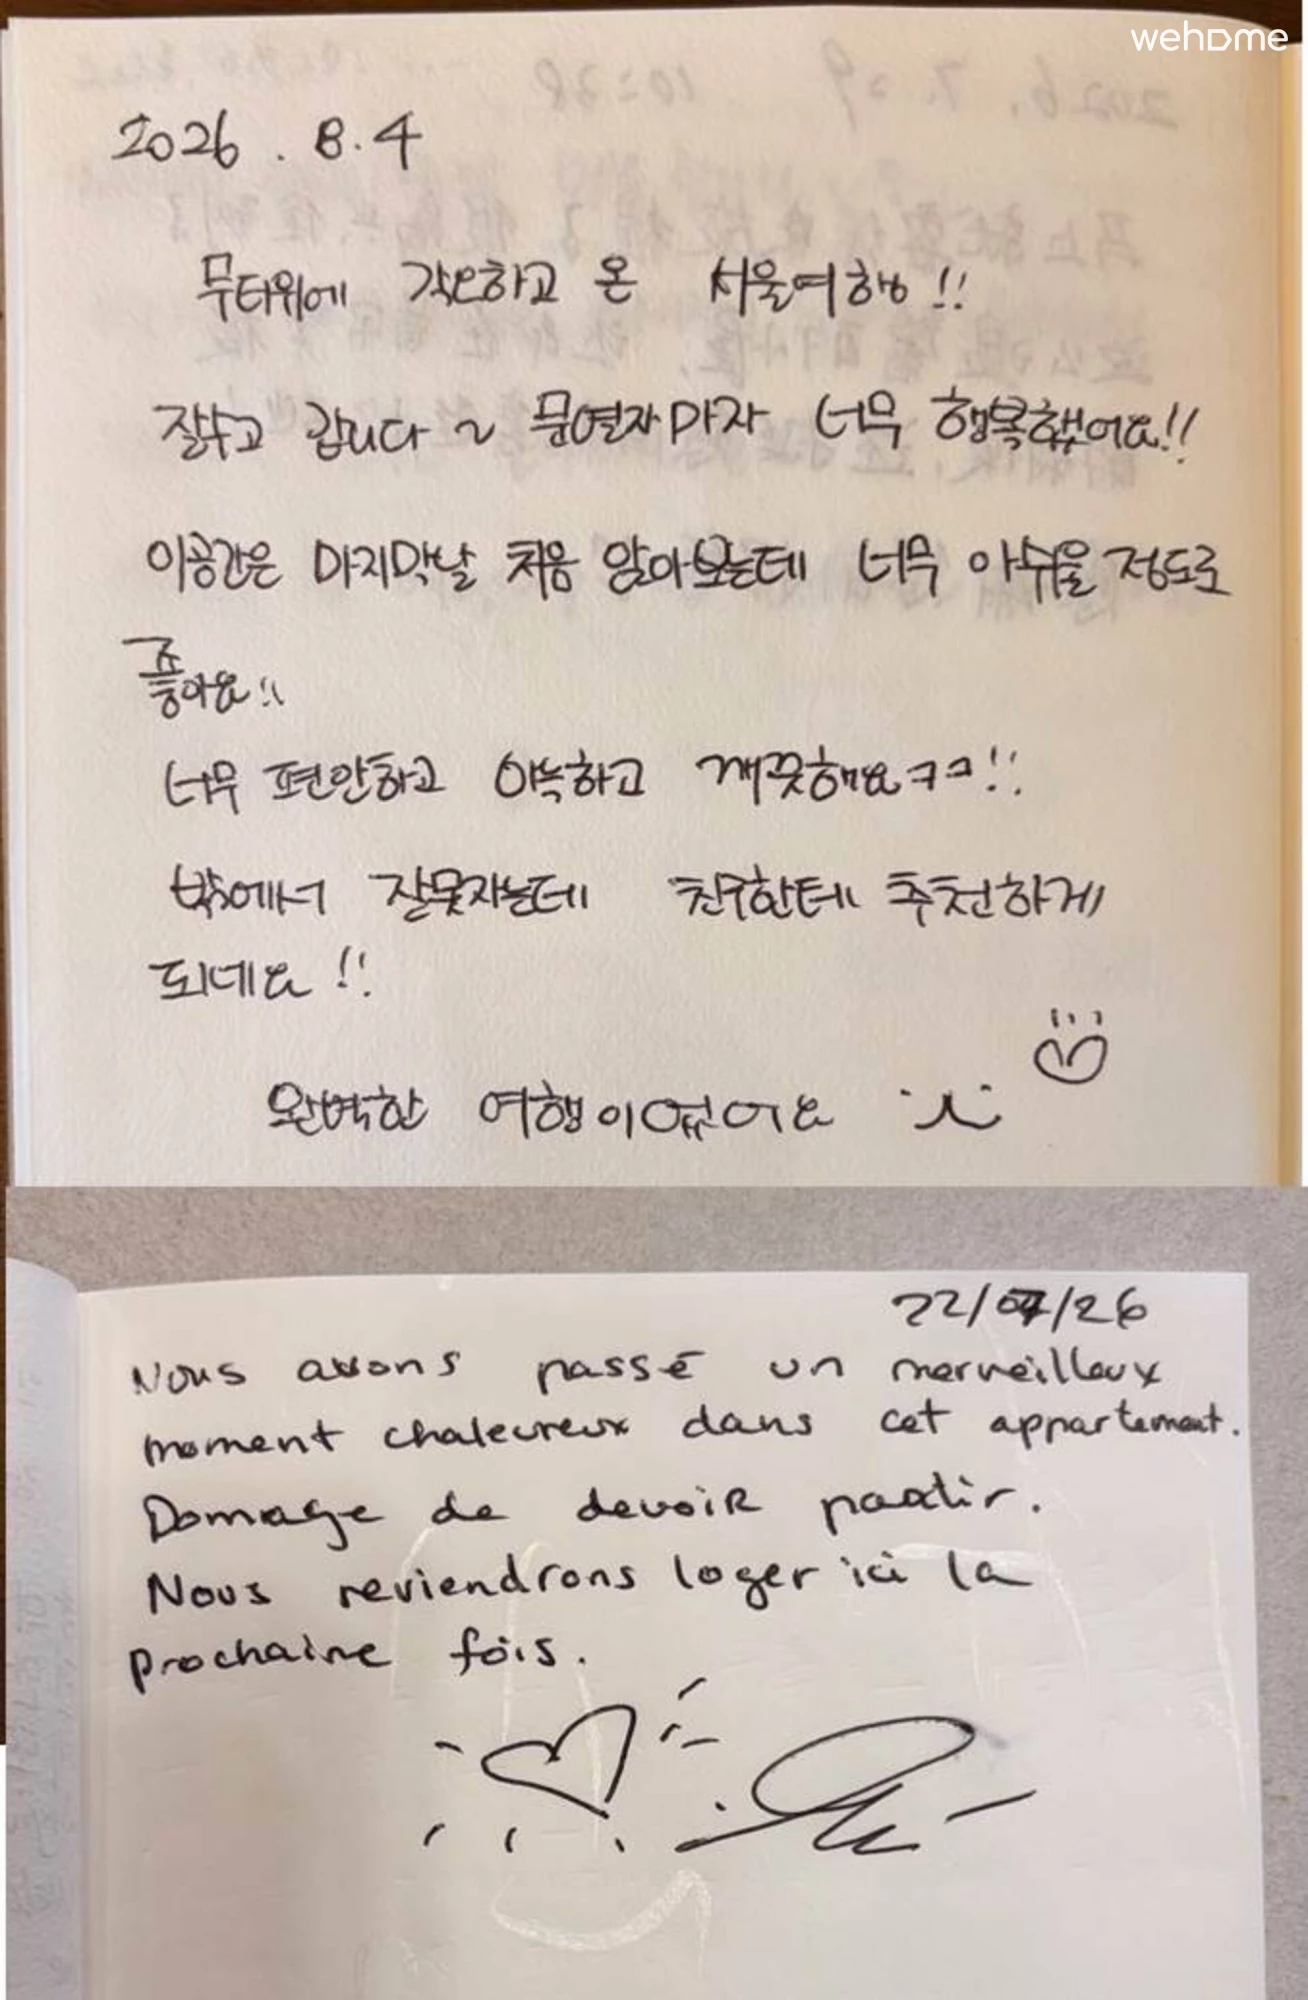 wehome
2026 . 8.4
무더위에 각오하고 온 서울여행!!
잘쉬고 갑니다 ~ 문열자마자 너무 행복했어요!!
이공간은 마지막날 처음 앉아보는데 너무 아쉬울 정도로
좋아요!!
너무 편안하고 아늑하고 깨끗해요ㅋㅋ!!
밖에서 잘못자는데 친구한테 추천하게
되네요!!
완벽한 여행이었어요
22/07/26
Nous avons passé un merveilleux
moment chaleureux dans cet appartement.
Domage de devoir partir.
Nous reviendrons loger ici la
prochaine fois.